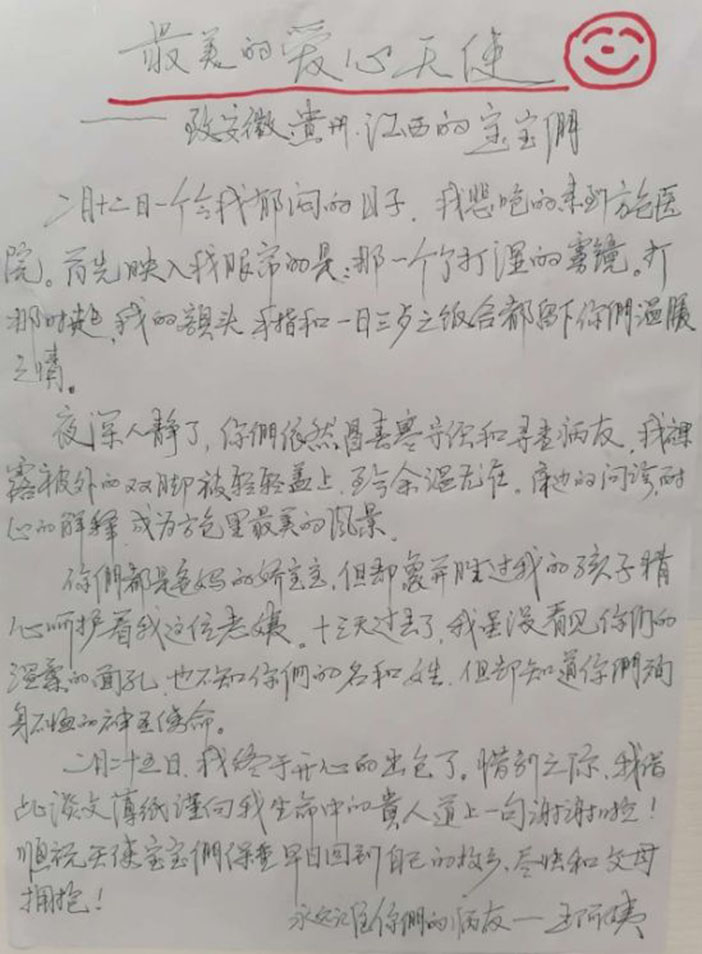 最美的爱心天使
——致安徽.贵州.江西的宝宝們
二月十二日一个令我郁闷的日子，我恐惶的来到方仓医
院。首先映入我眼帘的是：那一个个打湿的雾镜。打
那时起，我的额头、手指和一日三步之饭合都留下你們温暖
之情。
夜深人静了，你們依然冒春寒守夜和寻查病友，我裸
露被外的双脚被轻轻盖上，至今余温尤在。床边的问诊，耐
心的解释成为方仓里最美的风景。
你們都是爸妈的娇宝宝，但却像并胜过我的孩子精
心呵护着我这位老姨。十三天过去了，我虽没看见你们的
温柔的面孔，也不知你們的名和姓，但却知道你們
身不怕的神圣使命。
二月二十五日，我终于开心的出仓了。惜别之际，我借
此淡文薄纸谨向我生命中的贵人道上一句谢谢啦！
顺祝天使宝宝們保重早日回到自己的故乡，尽快和父母
拥抱！
永远记住你們的病友——王阿姨